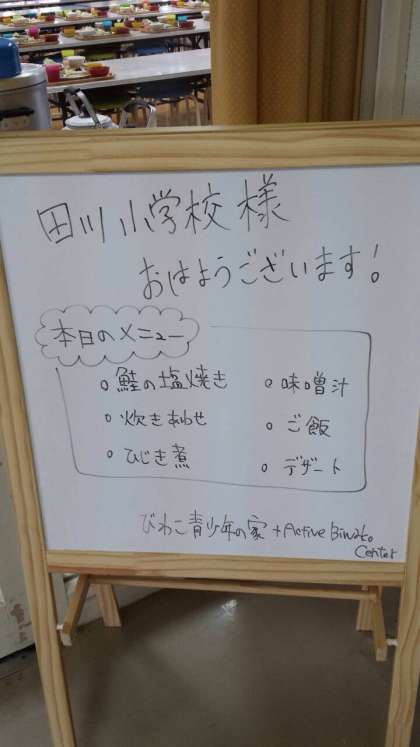 田川小学校様
おはようございます!
本日のメニュー
○鮭の塩焼き ○味噌汁
○炊きあわせ ○ご飯
○ひじき煮 ○デザート
びわこ青少年の家+Active Biwako
Center